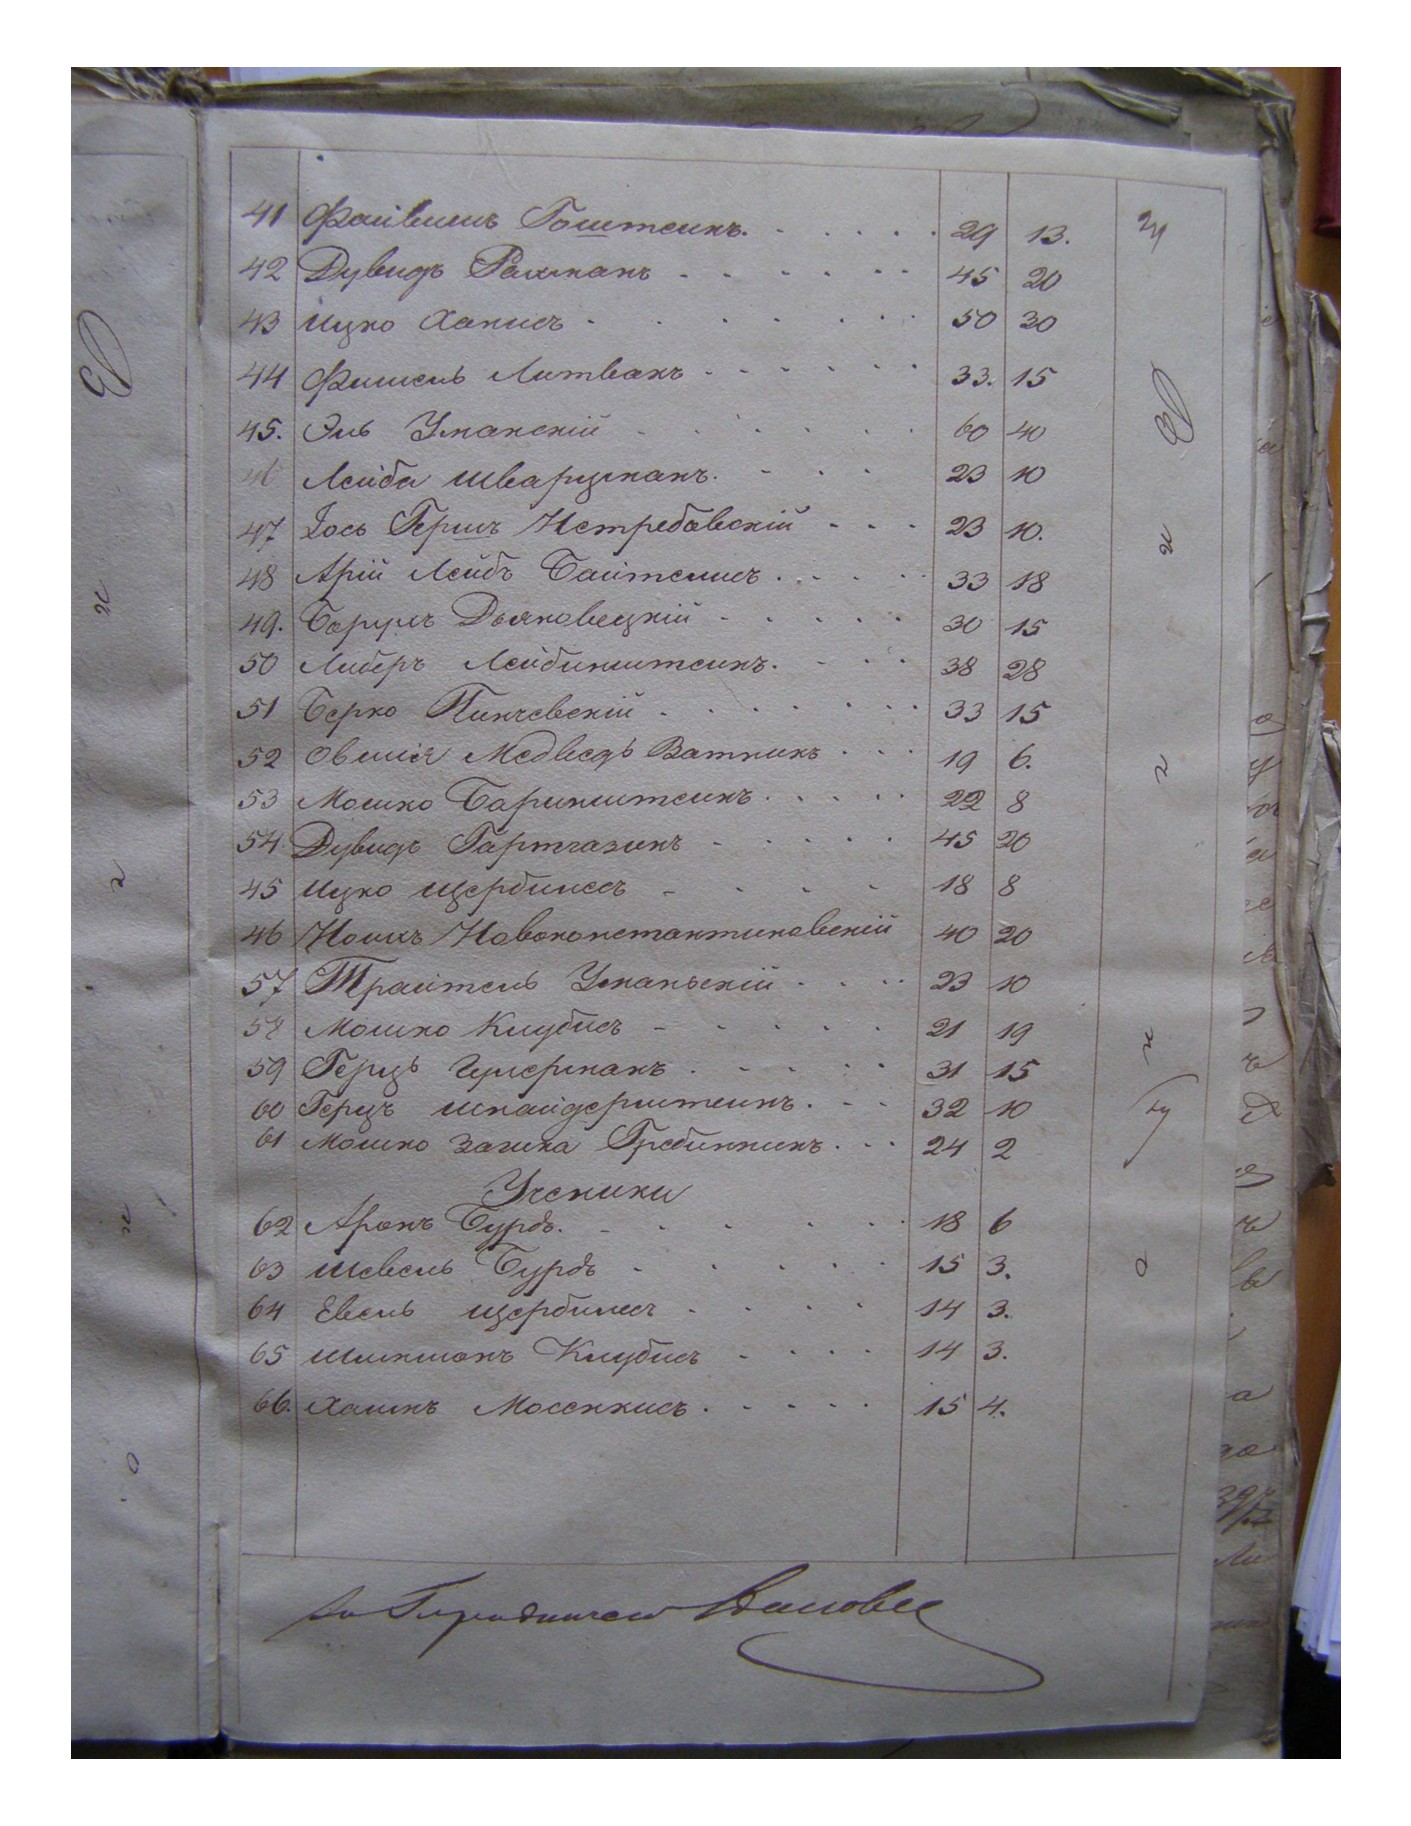 41 Файвишъ Гоштеинъ. 29 13.
42 Дувидъ Рахманъ 45 20
43 Ицко Ханисъ 50 30
44 Фишель Литвакъ 33. 15
45. Эль Уманскій 60 40
46 Лейба Шварцманъ. 23 10
47 Іось Гершъ Нетребовскій 23 10.
48 Арій Лейбъ Байтелисъ. 33 18
49. Борухъ Дьяковецкій 30 15
50 Либеръ Лейбинштеинъ. 38 28
51 Берко Пинчевскій 33 15
52 Овшія Медведъ Ватникъ 19 6.
53 Мошко Баринштеинъ 22 8
54 Дувидъ Гартгазинъ 45 20
45 Ицко Щербинесъ 18 8
46 Ноикъ Новоконстантиновскій 40 20
57 Трайтель Уманьскій 23 10
58 Мошко Клубисъ 21 19
59 Герцъ 31 15
60 Герцъ Шнайдерштеинъ. 32 10
61 Мошко Гребинникъ. 24 2
Ученики
62 Аронъ Бурдъ. 18 6
63 Шевель Бурдъ 15 3.
64 Евель 14 3.
65 Клубисъ 14 3.
66. Хаимъ 15 4.